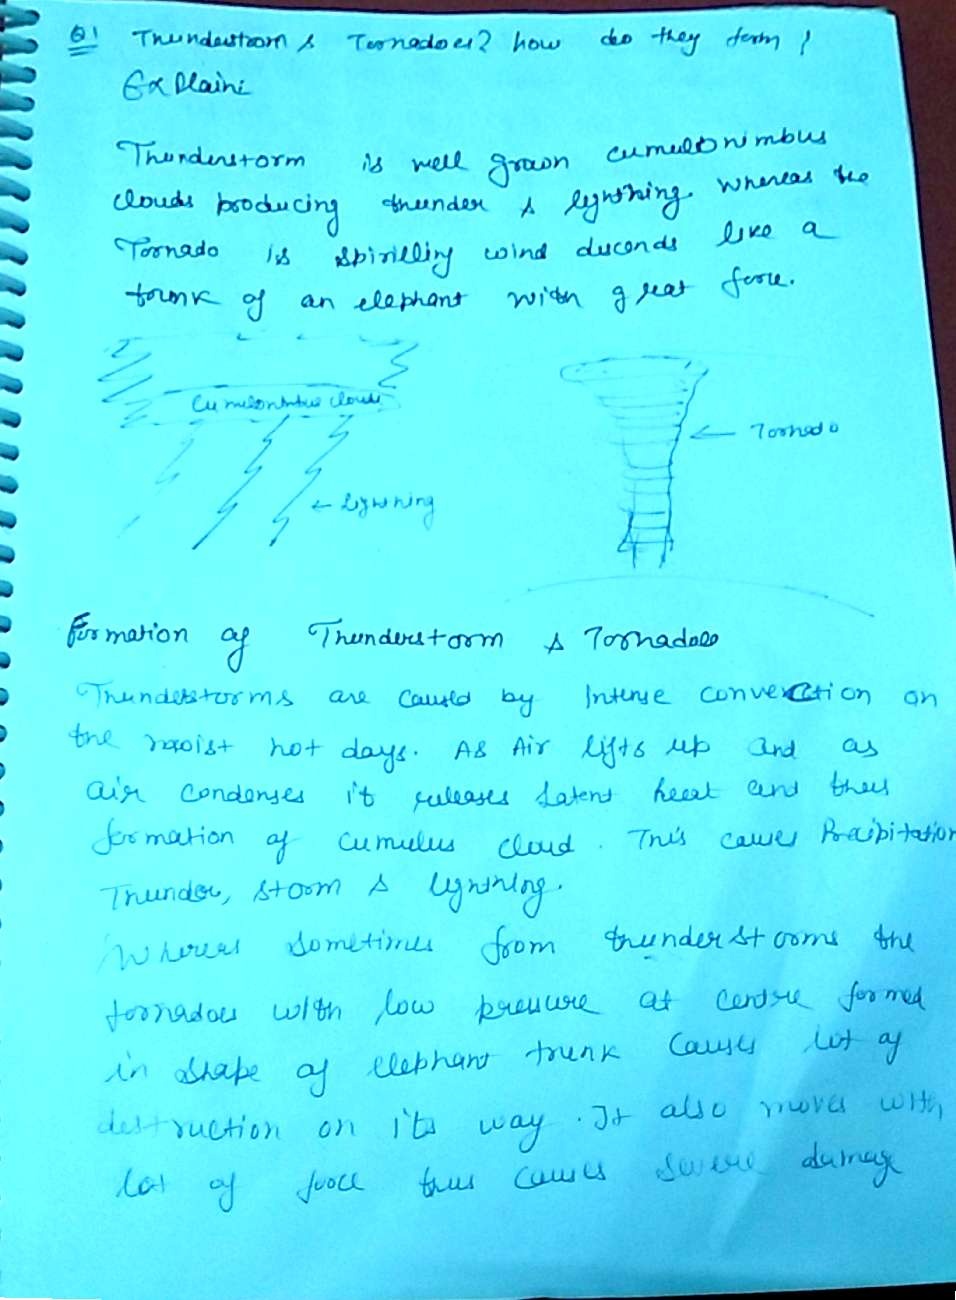 Q1 Thunderstroom & Toornadoes? how do they form?
Explain:
Thunderstorm is well grown cumulonimbus
clouds producing thunder & lignthing whereas the
Toornado is spirilling wind descends like a
trunk of an elephant with great force.
Cumulonimbus clouds
← Toornado
← lignthing
Formation of Thunderstoorm & Toornadoes
Thunderstorms are caused by Intense convection on
the moist hot days. As Air lifts up and as
air condenses it releases latent heat and thus
formation of cumulus cloud. This causes Precipitation
Thunder, stoorm & lignthing.
Whereas sometimes from thunderstooms the
toornadoes with low pressure at centre formed
in shape of elephant trunk causes lot of
destruction on its way. It also moves with
lot of force thus causes severe damage